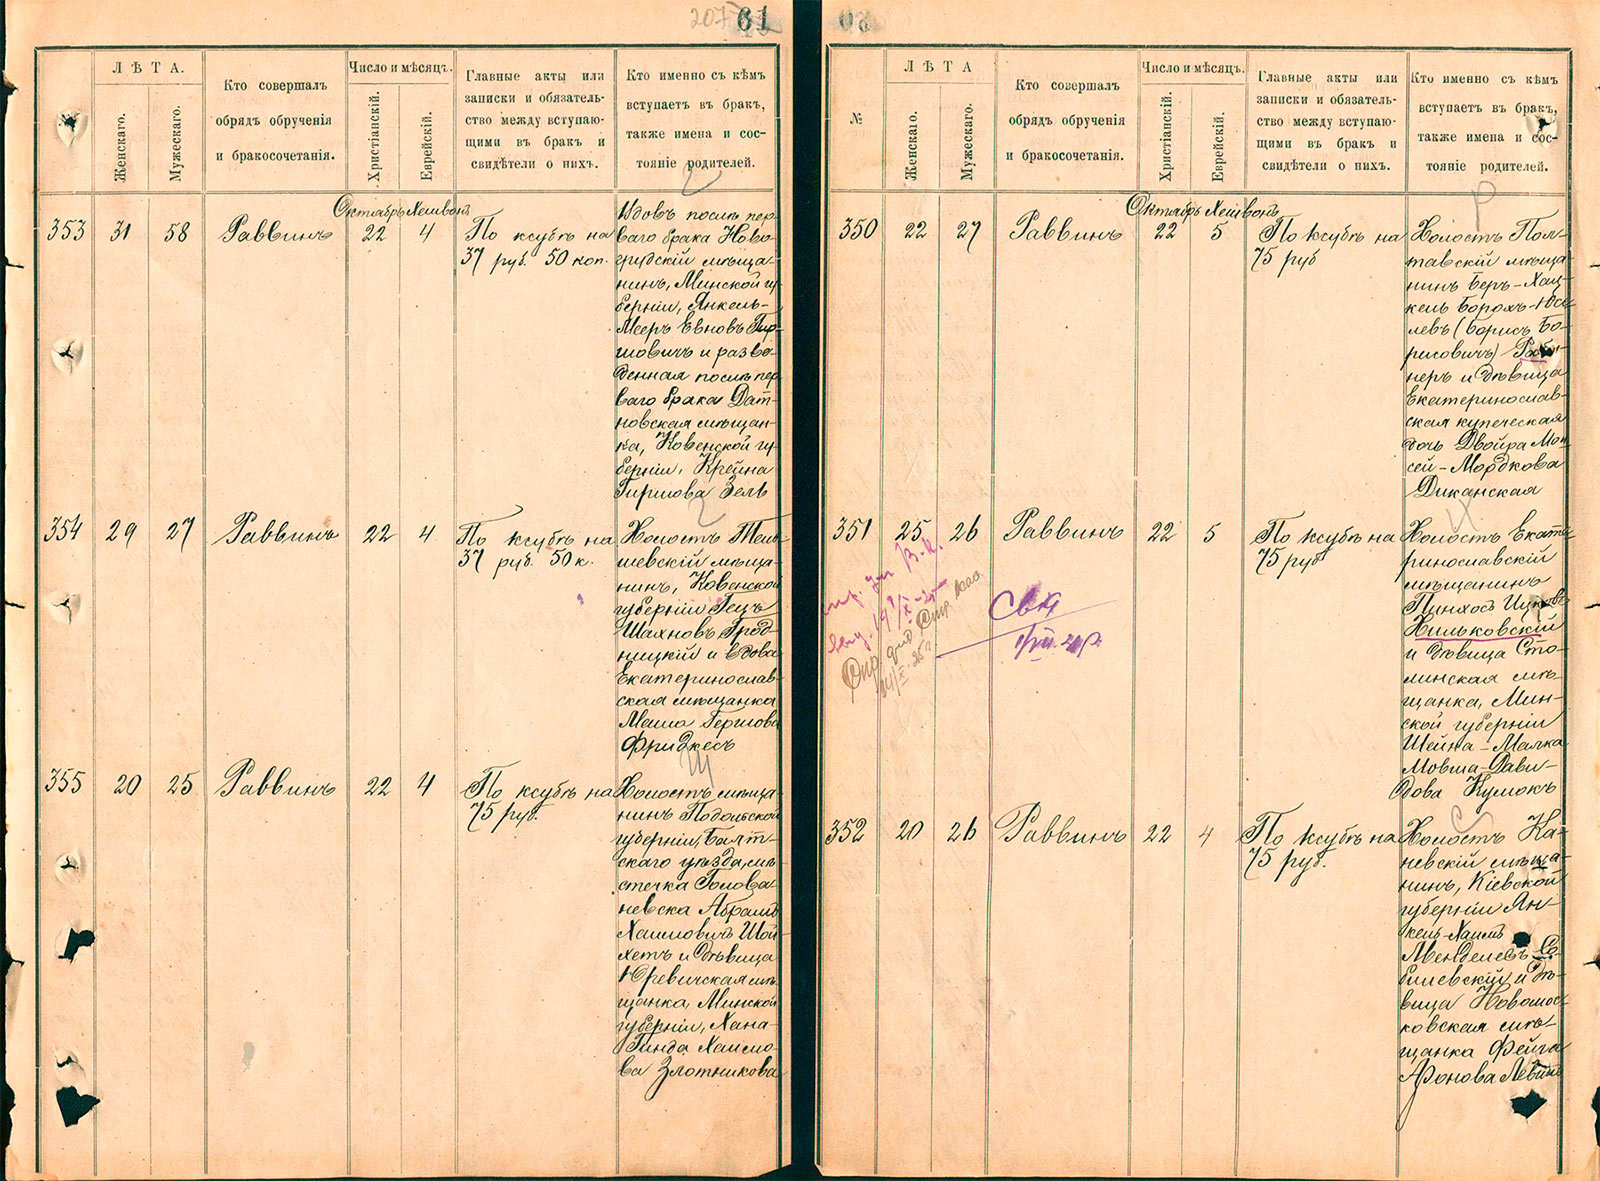 207 61
ЛѢТА.
Женскаго.
Мужескаго.
Кто совершалъ
обрядъ обрученія
и бракосочетанія.
Число и мѣсяцъ.
Христіанскій.
Еврейскій.
Главные акты или
записки и обязатель-
ство между вступаю-
щими въ бракъ и
свидѣтели о нихъ.
Кто именно съ кѣмъ
вступаетъ въ бракъ,
также имена и сос-
тояніе родителей.
Октябрь Хешвонъ
353 31 58 Раввинъ 22 4
По ксубѣ на
37 руб. 50 коп.
Вдовъ послѣ пер-
ваго брака Ново-
грудскій мѣща-
нинъ, Минской гу-
берніи, Янкель-
Мееръ Евновъ Гир-
шовичъ и разве-
денная послѣ пер-
ваго брака Дат-
новская мѣщан-
ка, Ковенской гу-
берніи, Крейна
Гиршова Зель
354 29 27 Раввинъ 22 4
По ксубѣ на
37 руб. 50 к.
Холостъ Тель-
шевскій мѣща-
нинъ, Ковенской
губерніи Гецъ
Шахновъ Грод-
ницкій и вдова
Екатеринослав-
ская мѣщанка
Маша Гершова
Фридкесъ
355 20 25 Раввинъ 22 4
По ксубѣ на
75 руб.
Холостъ мѣща-
нинъ Подольской
губерніи, Балт-
скаго уѣзда, мѣ-
стечка Голова-
невска Абрамъ
Хаимовичъ Шой-
хетъ и дѣвица
Юревичская мѣ-
щанка, Минской
губерніи, Хана-
Гинда Хаимо-
ва Злотникова
№
ЛѢТА
Женскаго.
Мужескаго.
Кто совершалъ
обрядъ обрученія
и бракосочетанія.
Число и мѣсяцъ.
Христіанскій.
Еврейскій.
Главные акты или
записки и обязатель-
ство между вступаю-
щими въ бракъ и
свидѣтели о нихъ.
Кто именно съ кѣмъ
вступаетъ въ бракъ,
также имена и сос-
тояніе родителей.
Октябрь Хешвонъ
350 22 27 Раввинъ 22 5
По ксубѣ на
75 руб
Холостъ Пол-
тавскій мѣща-
нинъ Беръ-Хац-
кель Борохъ-Іосе-
левъ (Борисъ Бо-
рисовичъ)
неръ и дѣвица
Екатеринослав-
ская купеческая
дочь Двойра Мов-
сей-Мордкова
Диканская
351 25 26 Раввинъ 22 5
По ксубѣ на
75 руб
Холостъ Екате-
ринославскій
мѣщанинъ
Пинхосъ Ицковъ
Нильковскій
и дѣвица Сто-
линская мѣ-
щанка, Мин-
ской губерніи
Шейна-Малка
Мовша-Дави-
дова Кумокъ
352 20 26 Раввинъ 22 4
По ксубѣ на
75 руб.
Холостъ Ка-
невскій мѣща-
нинъ, Кіевской
губерніи Ян-
кель-Хаимъ
Менделевъ Со-
билевскій и дѣ-
вица Новомос-
ковская мѣ-
щанка Фейга
Аронова Левинъ